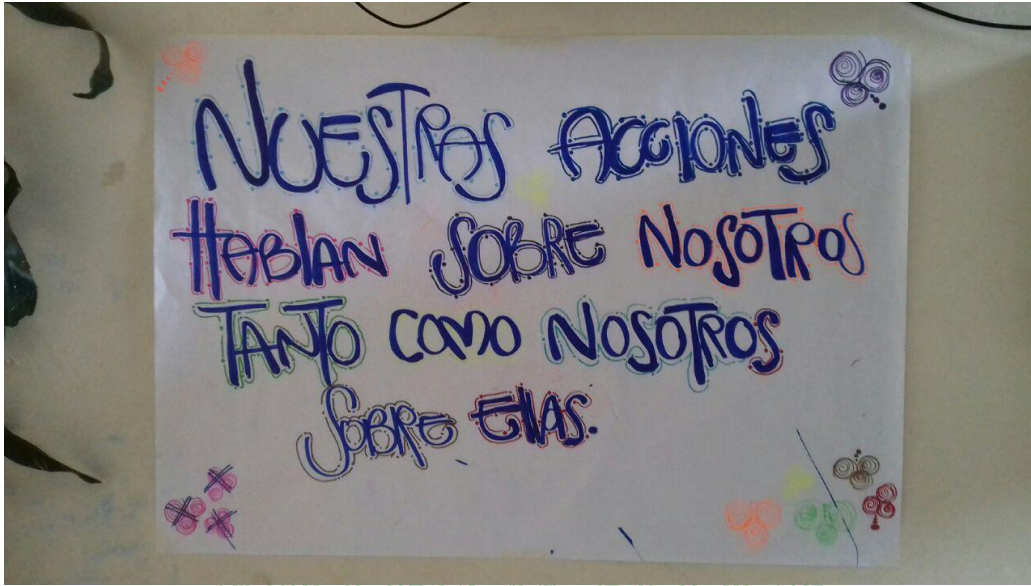 NUESTRAS ACCIONES
HABLAN SOBRE NOSOTROS
TANTO COMO NOSOTROS
SOBRE EllAS.